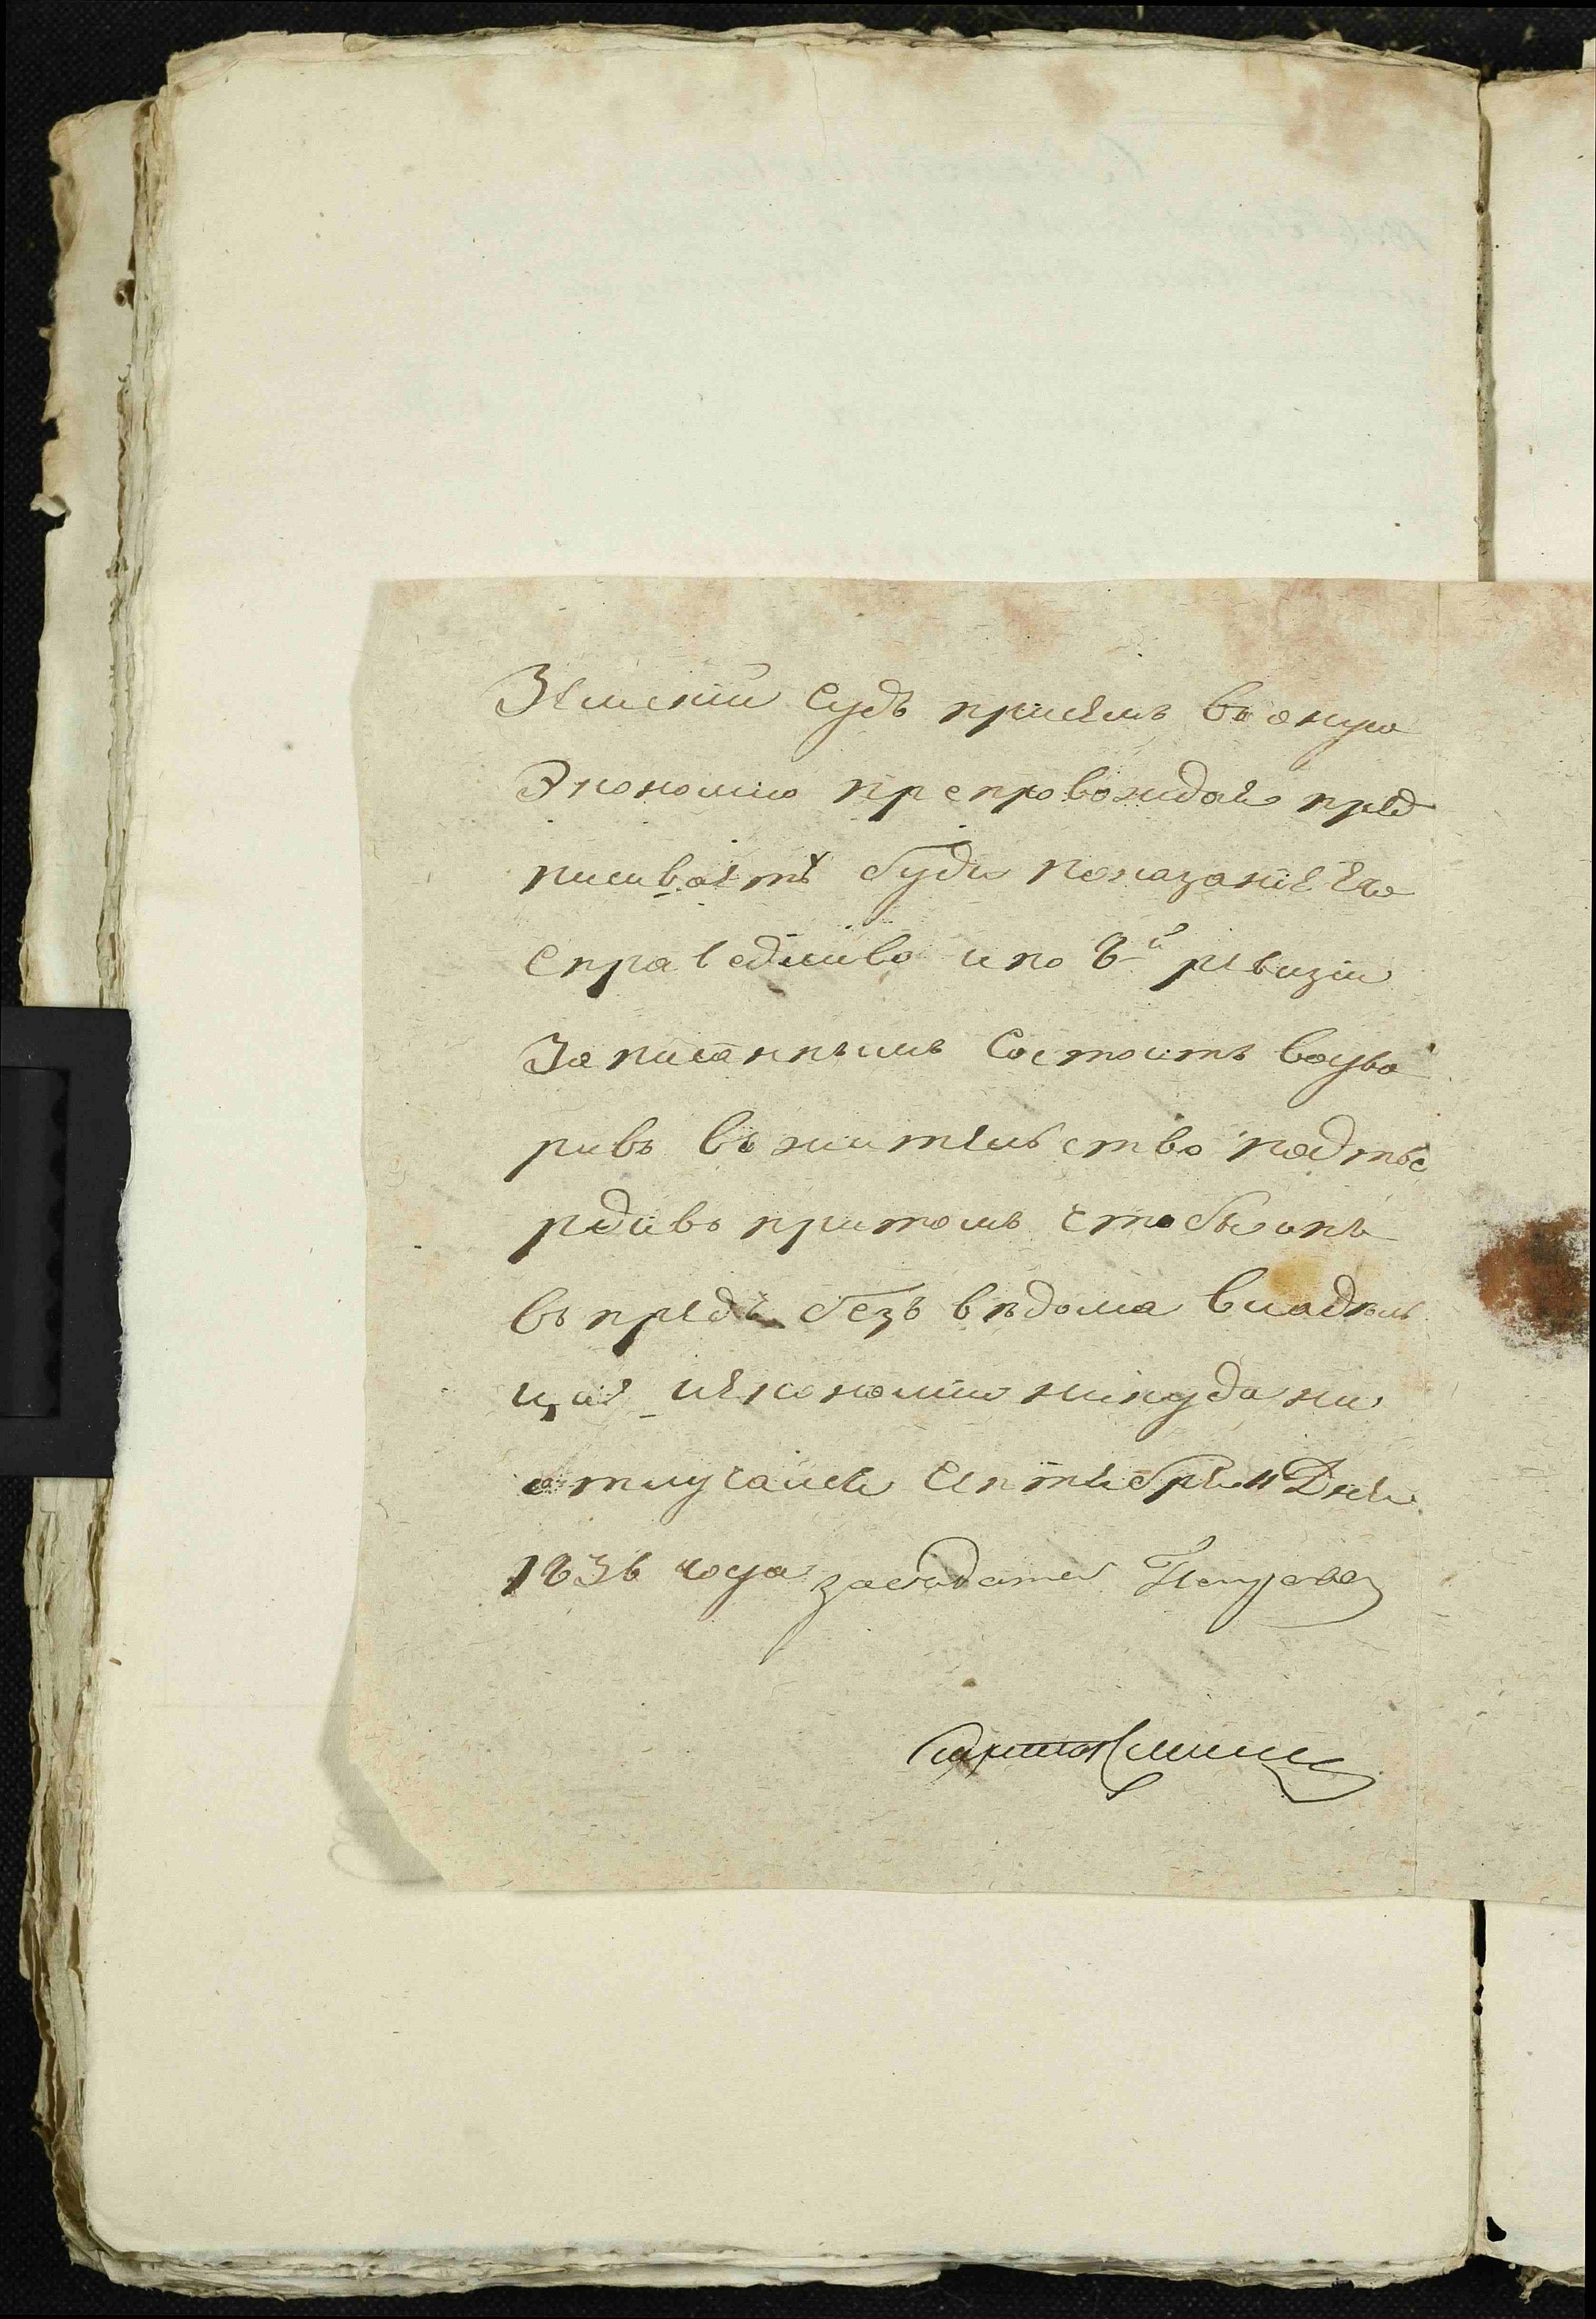 Земскій Судъ приемъ въ оную
Экономію препровождая пред
писиваетъ буди показаніе Его
справедливо ипо 8й ревизіи
Записаннымъ Состоитъ водво
ривъ въ жительство подтве
рдивъ притомъ чтобы онъ
въ предъ безъ вѣдома владель
цае иекономіи никуда ни
отлучался Сентебря 11 Дня
1836 года заседатель